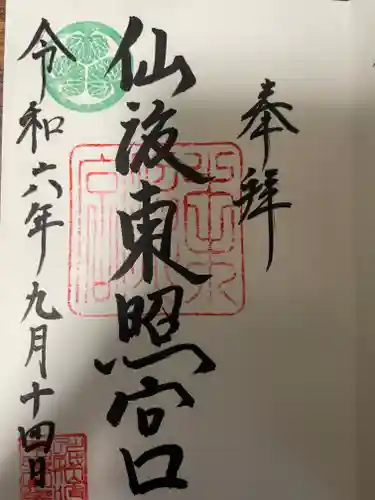 奉拝
仙波東照宮
令和六年九月十四日